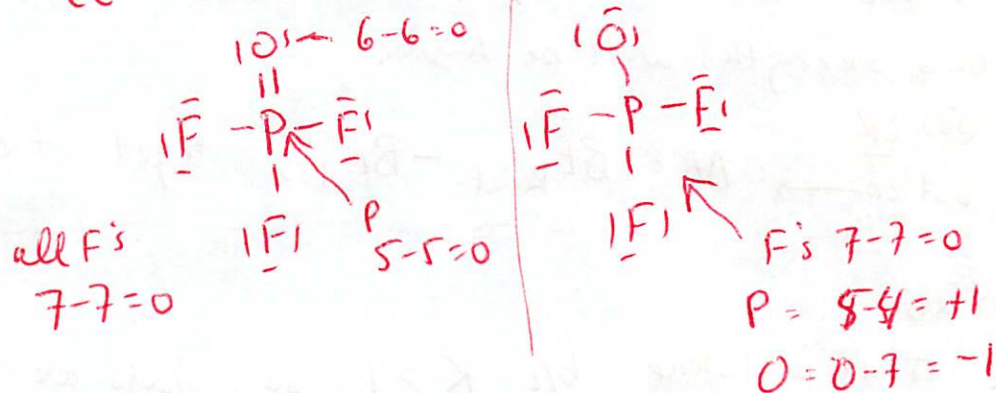 |O| ← 6-6=0
||
|F - P - F|
|
|F|
P
5-5=0
all F's
7-7=0
|O|
|
|F - P - F|
|
|F|
F's 7-7=0
P = 5-4 = +1
O = 0-7 = -1